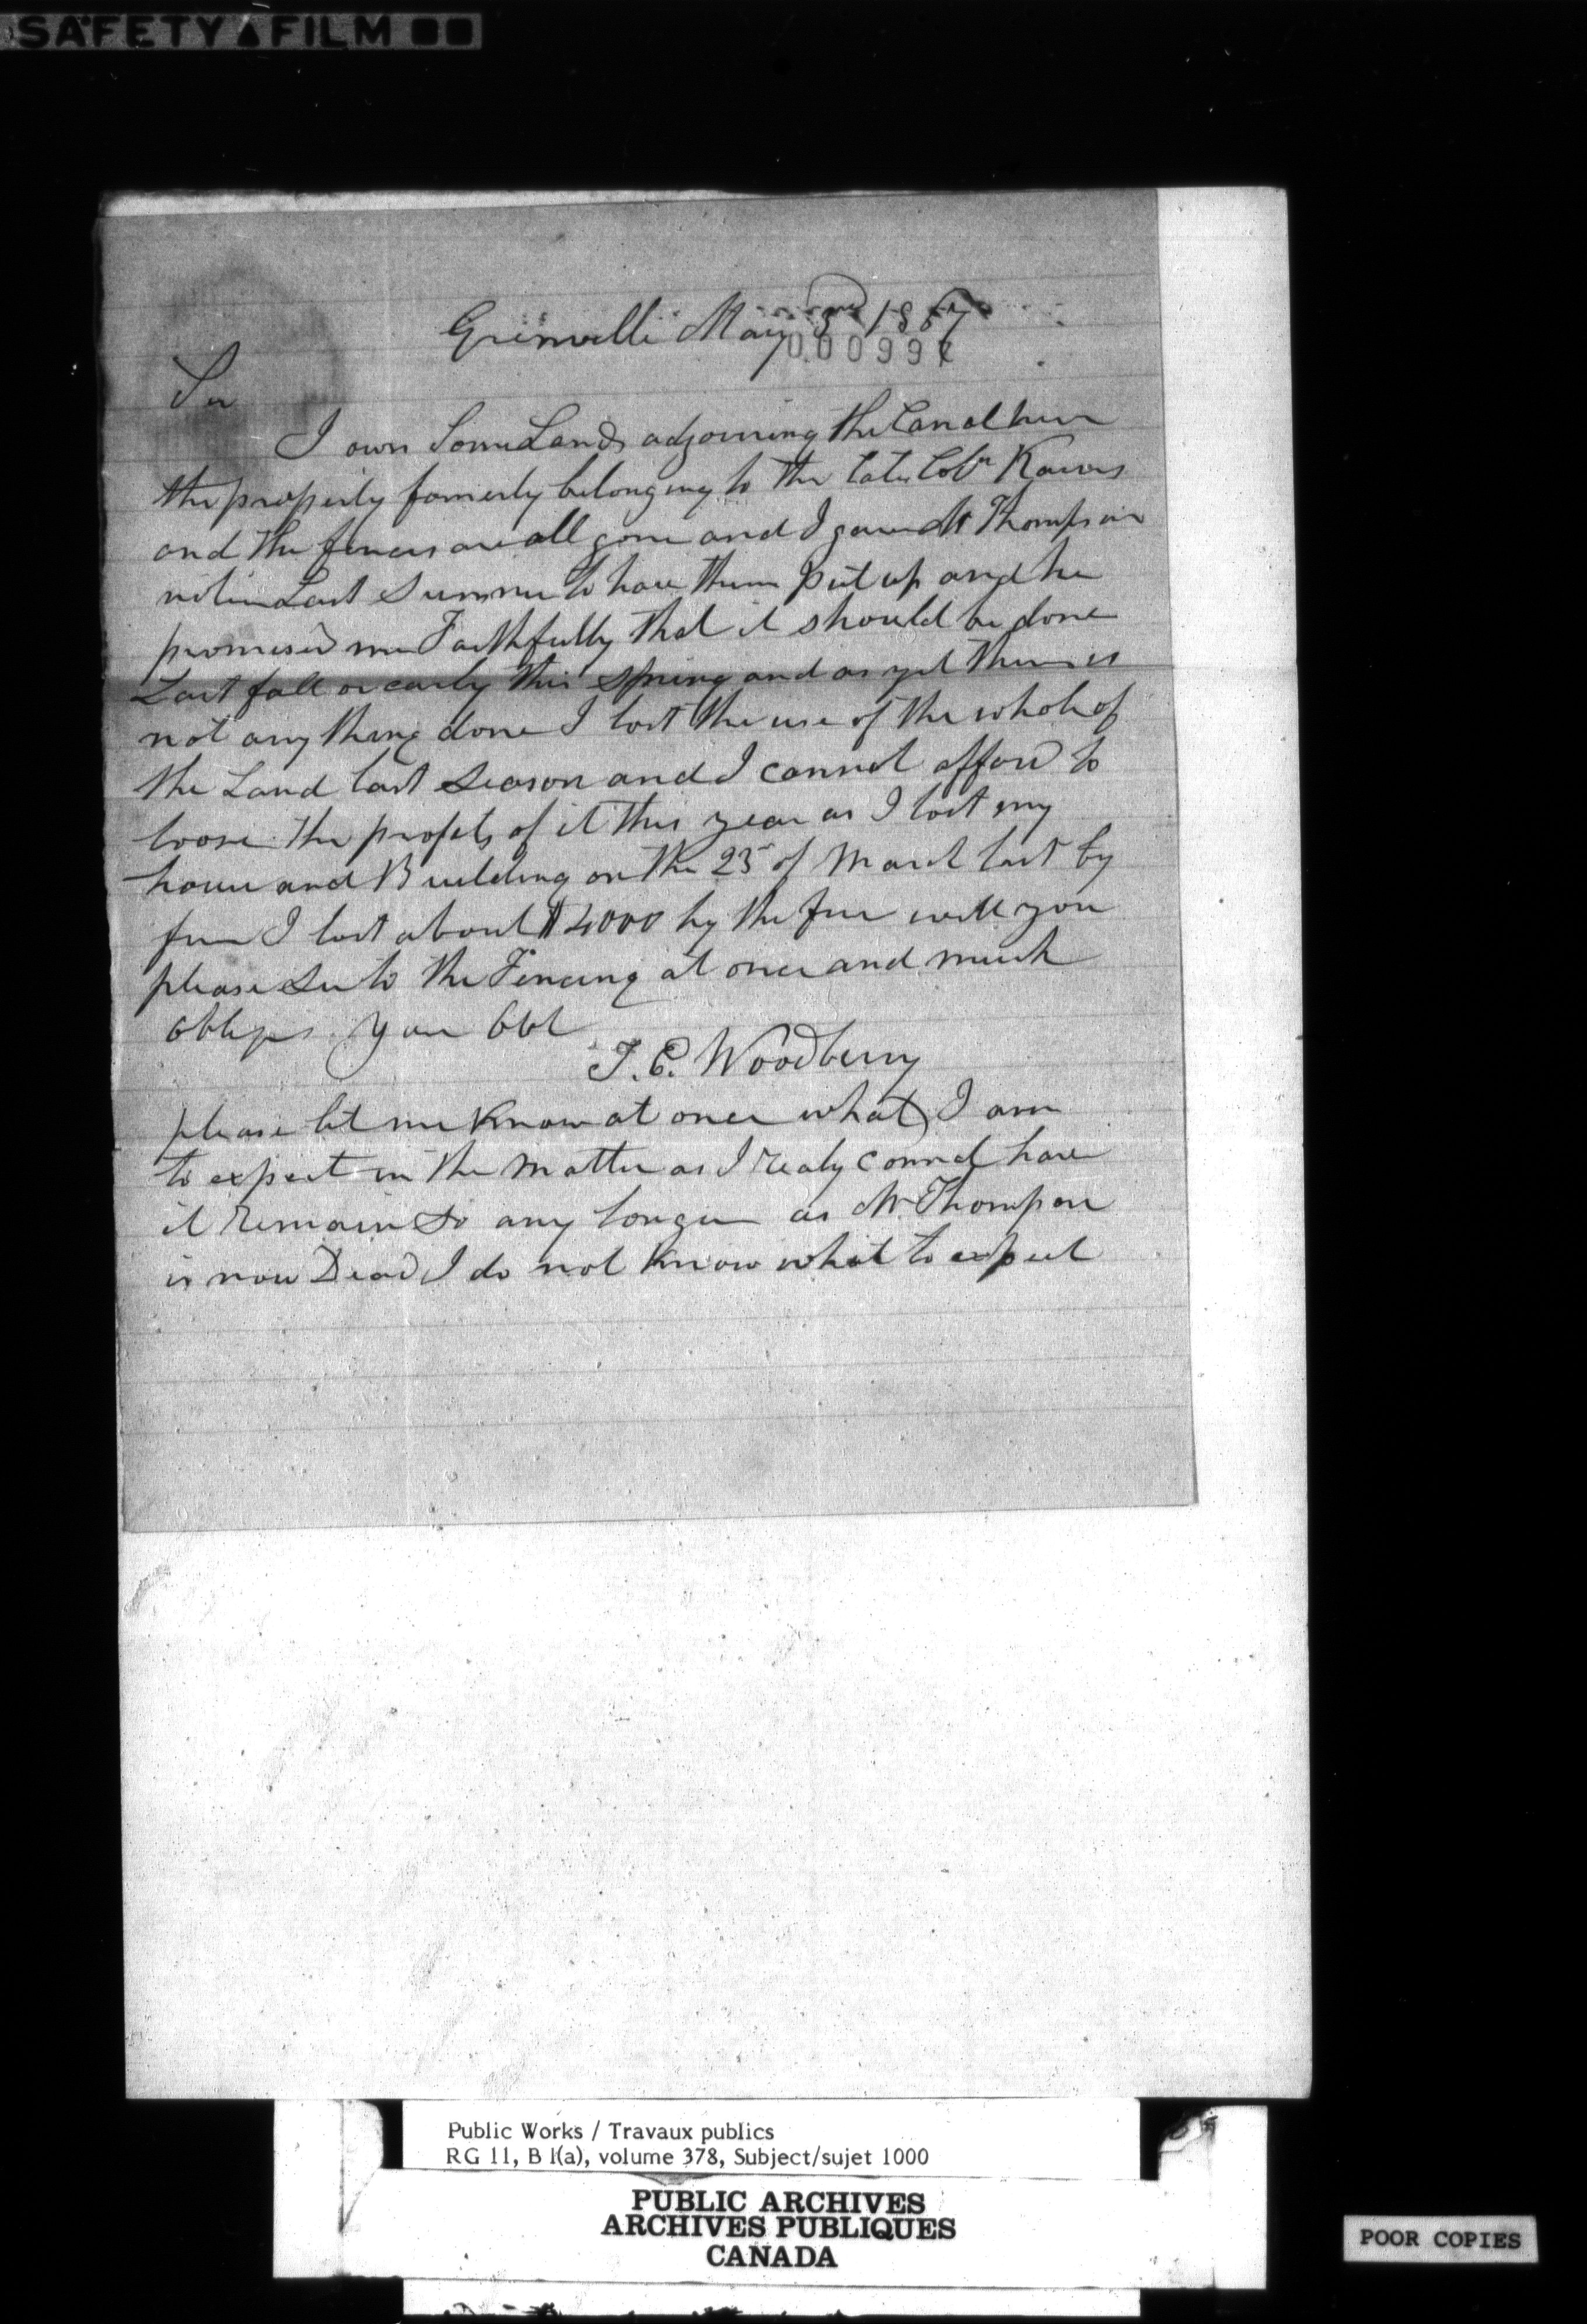 SAFETY FILM
Grenville May 3rd 1867
000997
Sir
I own Some Lands adjoining the Canal here
the property formerly belonging to the late Coln
and the fences are all gone and I gave Mr Thompson
notice Last Summer to have them put up and he
promised me Faithfully that it should be done
Last fall or early this spring and as yet there is
not any thing done I lost the use of the whole of
the Land last Season and I cannot afford to
loose the profits of it this year as I lost my
house and Building on the 25 of March last by
fire I lost about $4000 by the fire will you
please See to the Fencing at once and much
oblige your Obt
T. E. Woodberry
please let me Know at once what I am
to expect in the matter as I realy cannot have
it remain so any longer as Mr Thompson
is now Dead I do not Know what to expect
Public Works / Travaux publics
RG 11, B 1(a), volume 378, Subject/sujet 1000
PUBLIC ARCHIVES
ARCHIVES PUBLIQUES
CANADA
POOR COPIES